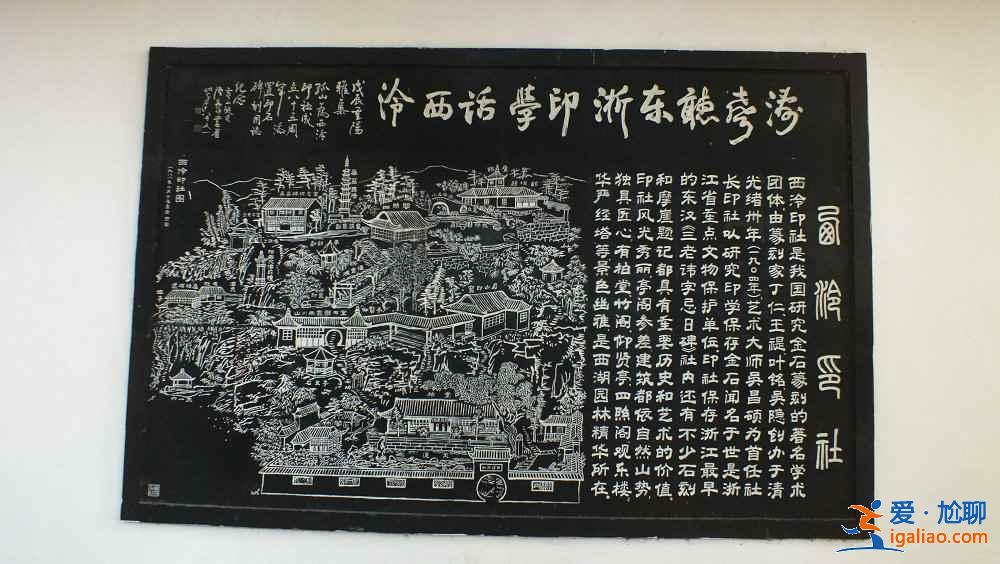 西泠印社
濤聲聽东浙印學話西泠
西泠印社是我国研究金石篆刻的著名学术
团体由篆刻家丁仁王禔叶铭吴隐创办于清
光绪卅年(一九〇四年)艺术大师吴昌硕为首任社
长印社以研究印学保存金石闻名于世是浙
江省重点文物保护单位印社保存浙江最早
的东汉《三老讳字忌日碑》社内还有不少石刻
和摩崖题记都具有重要历史和艺术的价值
印社风光秀丽亭阁参差建筑都依自然山势
独具匠心有柏堂竹阁仰贤亭四照阁观乐楼
华严经塔等景色幽雅是西湖园林精华所在
戊辰重陽
雅集
孤山為西泠
印社成
立八十五周
置印石
碑刊用誌
纪念
西泠印社图
爱·尬聊
igaliao.com